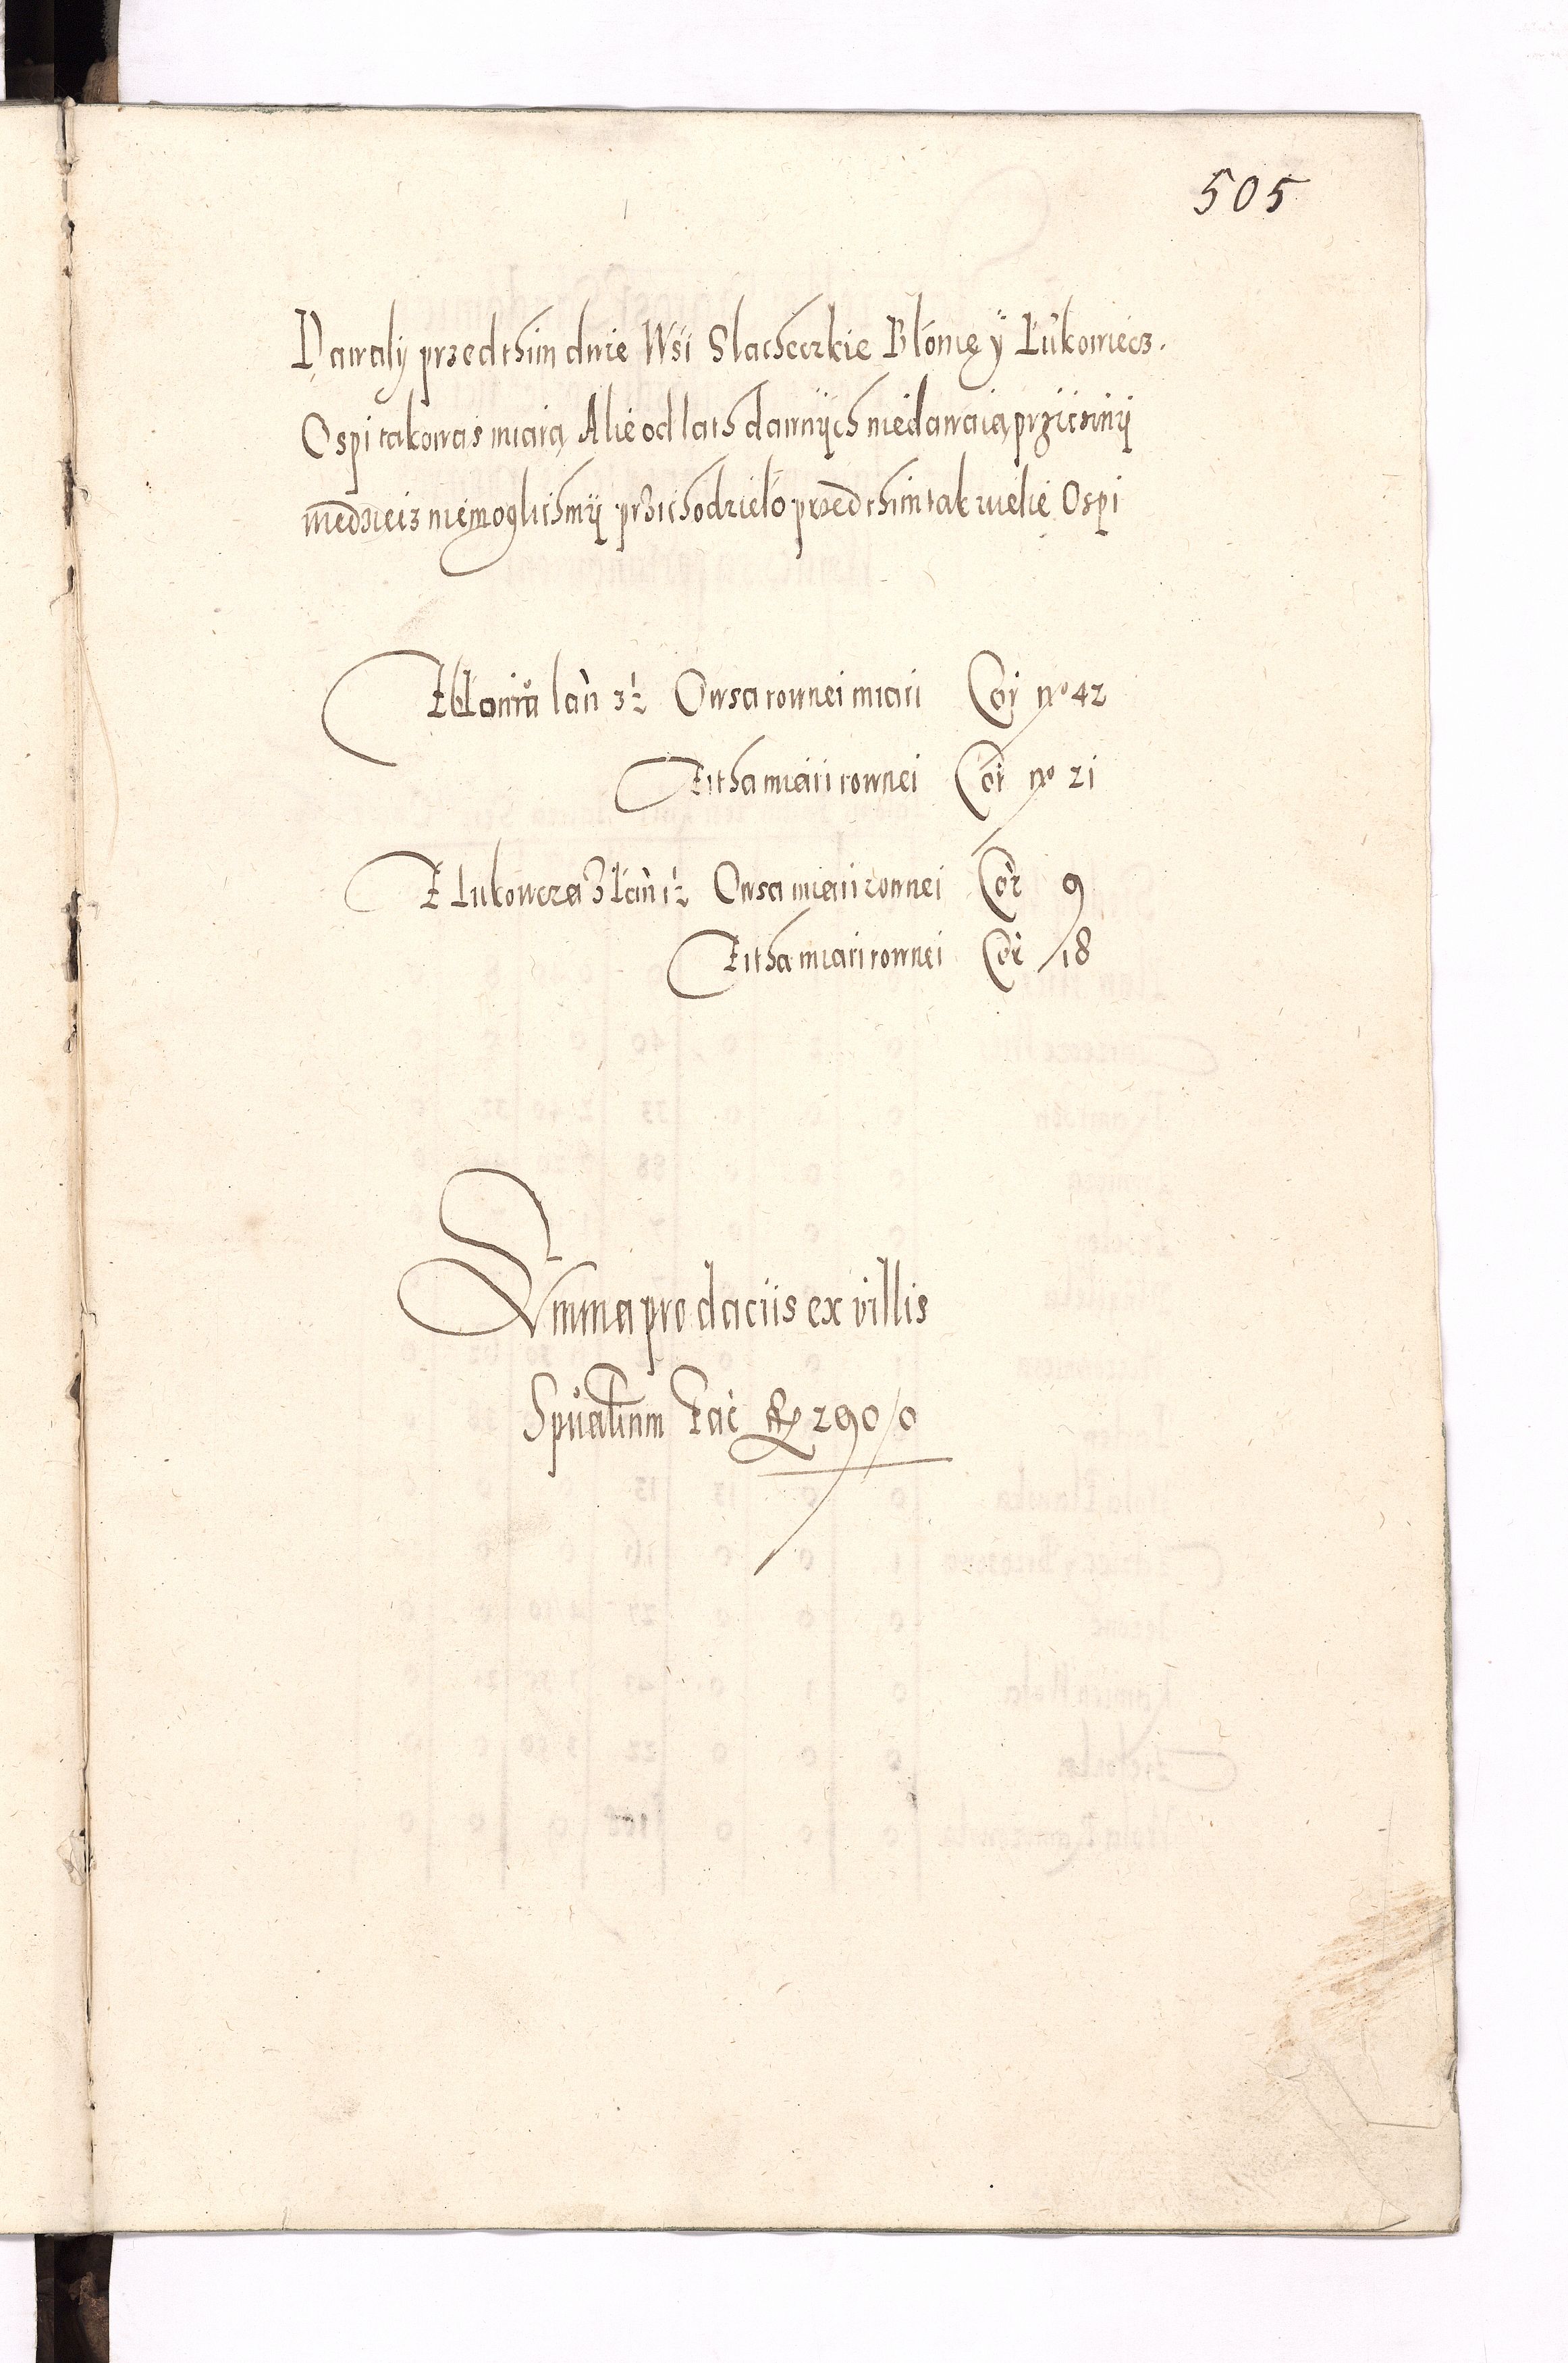 505
Dawaly przed thim dwie Wsi Slacheczkie Błonie y Łukowiecz.
Ospi takowąs miarą Alie od lath dawnÿch nie dawaią prziczinÿ
wiedzieć niemoglichmÿ przichodzieło przed thim tak wielie Ospi
Z Błoniu lan 3½ Owsa rownei miari Cor nº 42
Zitha miari rownei Cor nº 21
Z Lukowcza z łan 1½ Owsa miari rownei Cor 9
Zitha miari rownei Cor 18
Summa pro daciis ex villis
Spūalium fac 290/0